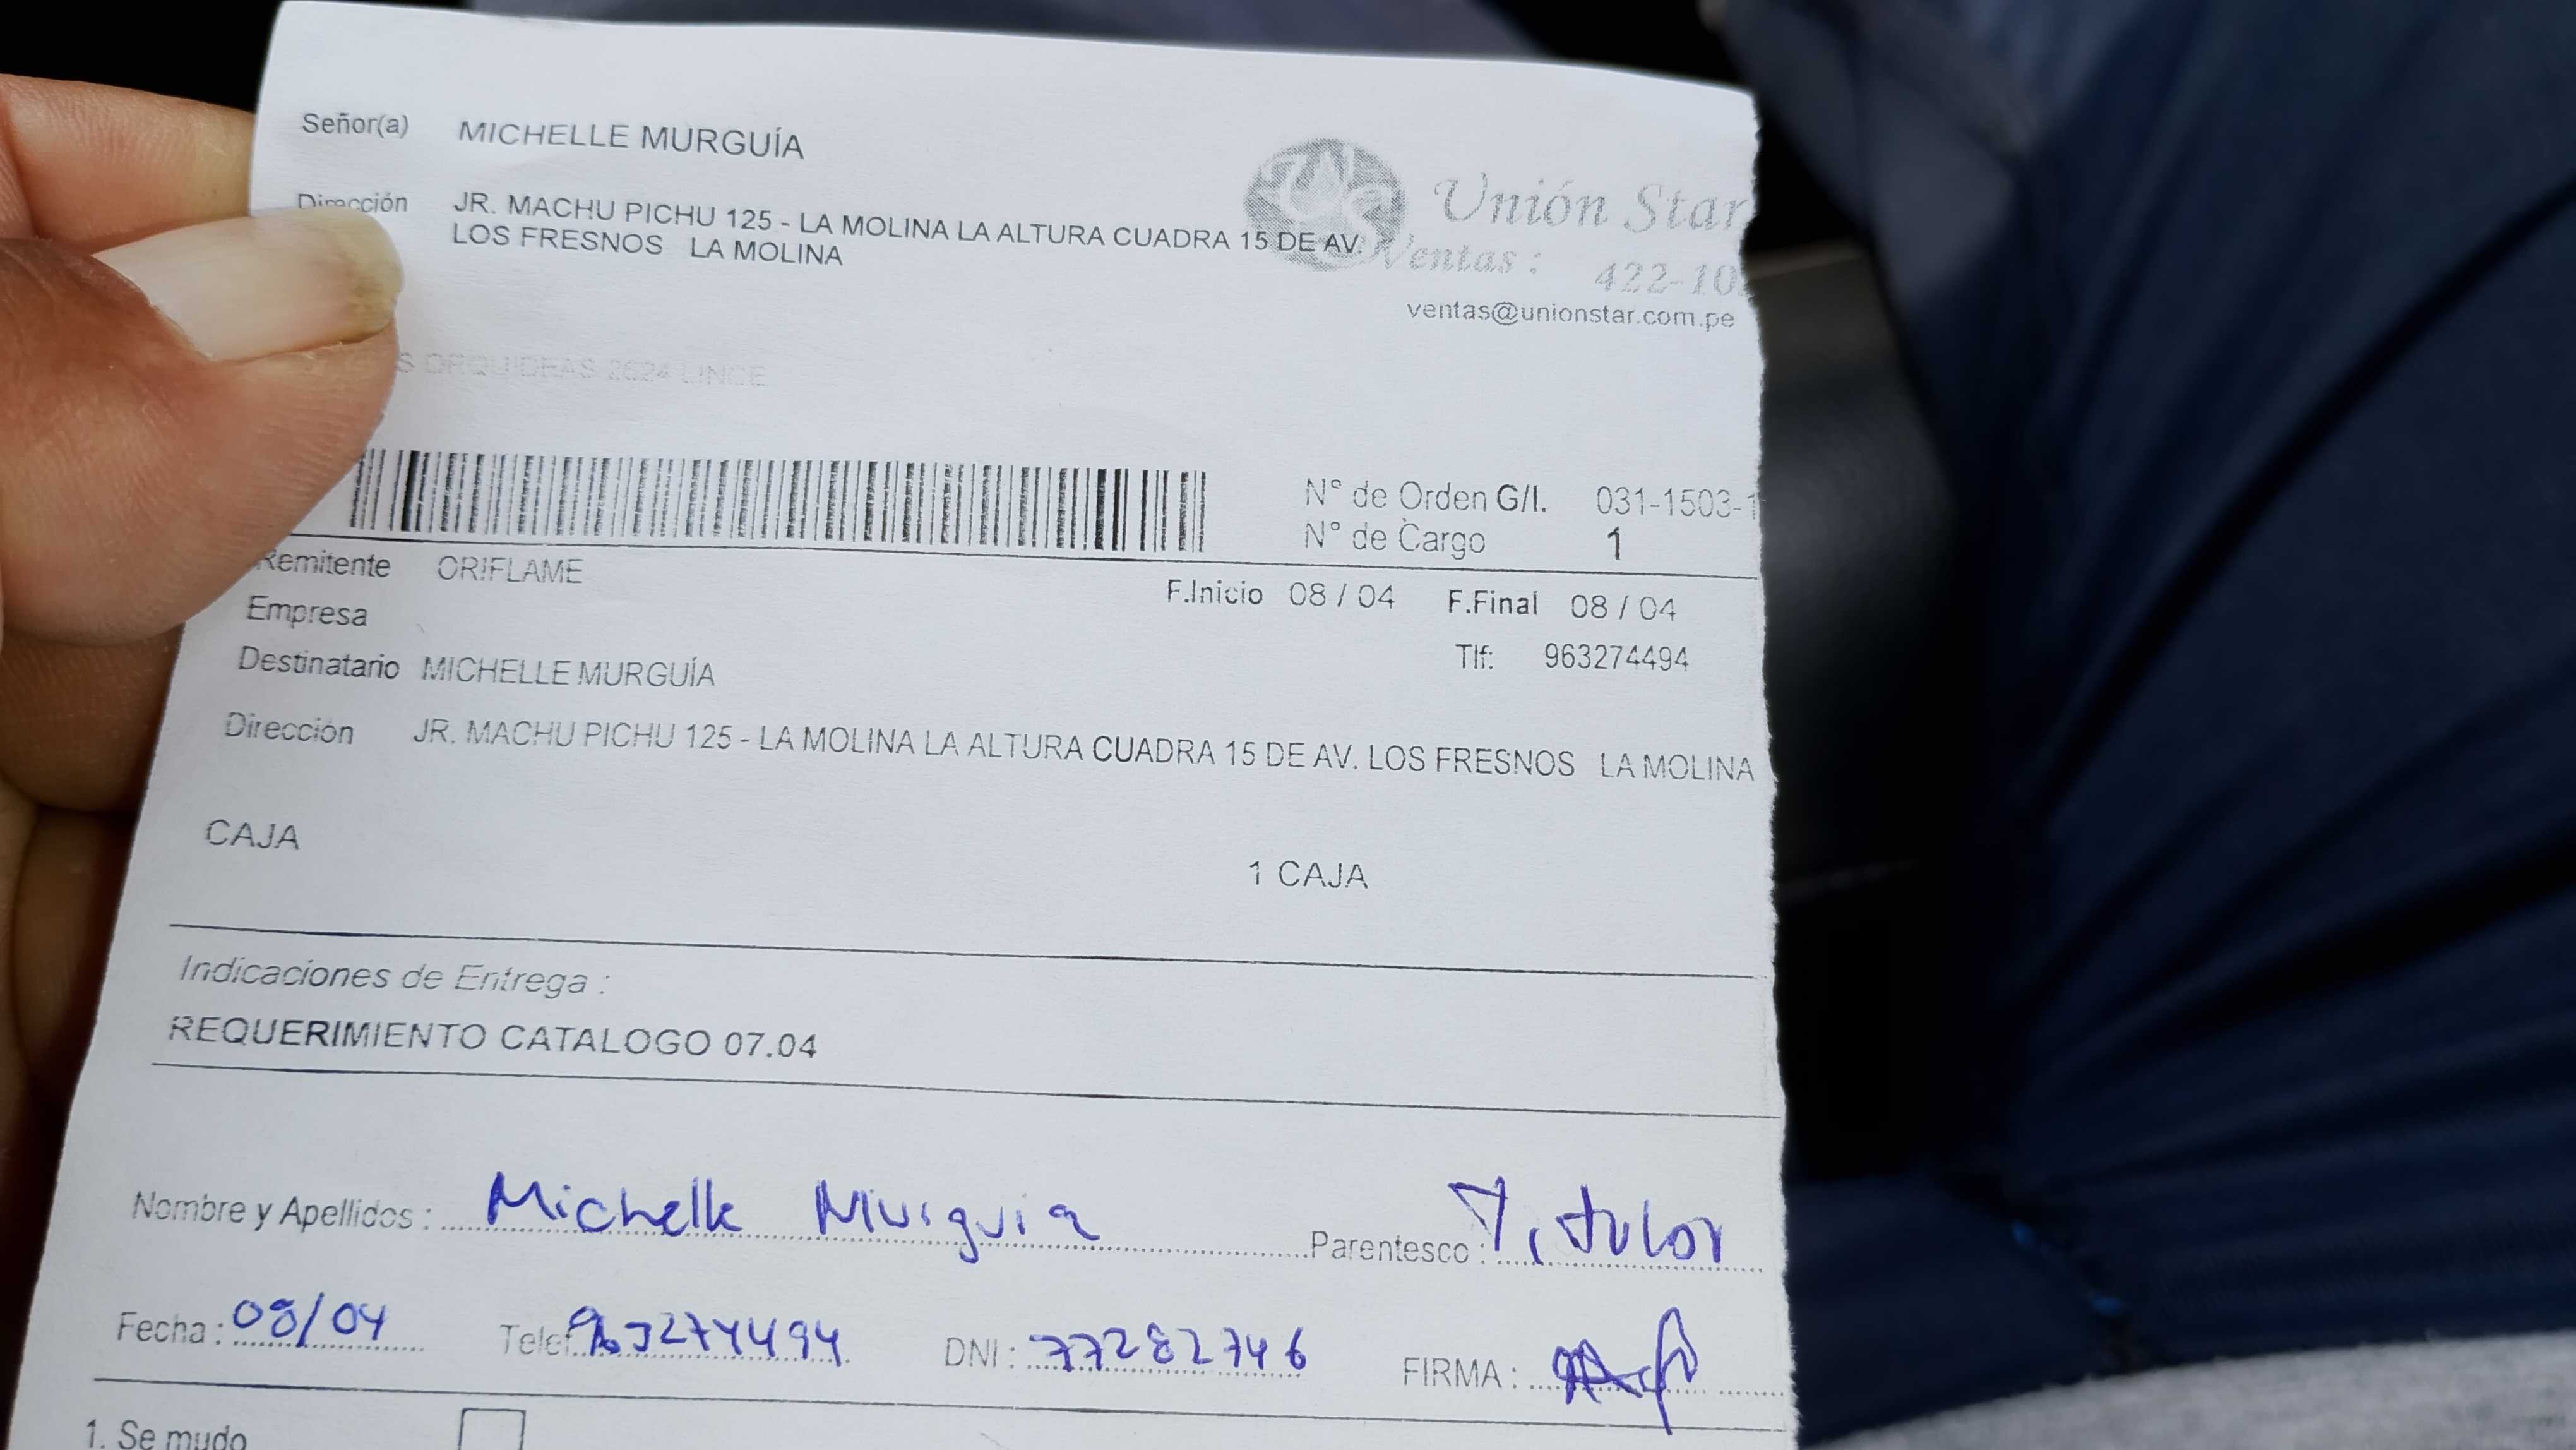 Señor(a) MICHELLE MURGUÍA
Dirección JR. MACHU PICHU 125 - LA MOLINA LA ALTURA CUADRA 15 DE AV.
LOS FRESNOS LA MOLINA
Unión Star
Ventas : 422-10
ventas@unionstar.com.pe
ORQUIDEAS 2624 LINCE
N° de Orden G/I. 031-1503-1
N° de Cargo 1
Remitente ORIFLAME
F.Inicio 08 / 04 F.Final 08 / 04
Empresa
Tlf: 963274494
Destinatario MICHELLE MURGUÍA
Dirección JR. MACHU PICHU 125 - LA MOLINA LA ALTURA CUADRA 15 DE AV. LOS FRESNOS LA MOLINA
CAJA
1 CAJA
Indicaciones de Entrega :
REQUERIMIENTO CATALOGO 07.04
Nombre y Apellidos : Michelle Murguia Parentesco : Titular
Fecha : 08/04 Telef. 963274494 DNI : 77282746 FIRMA :
1. Se mudo